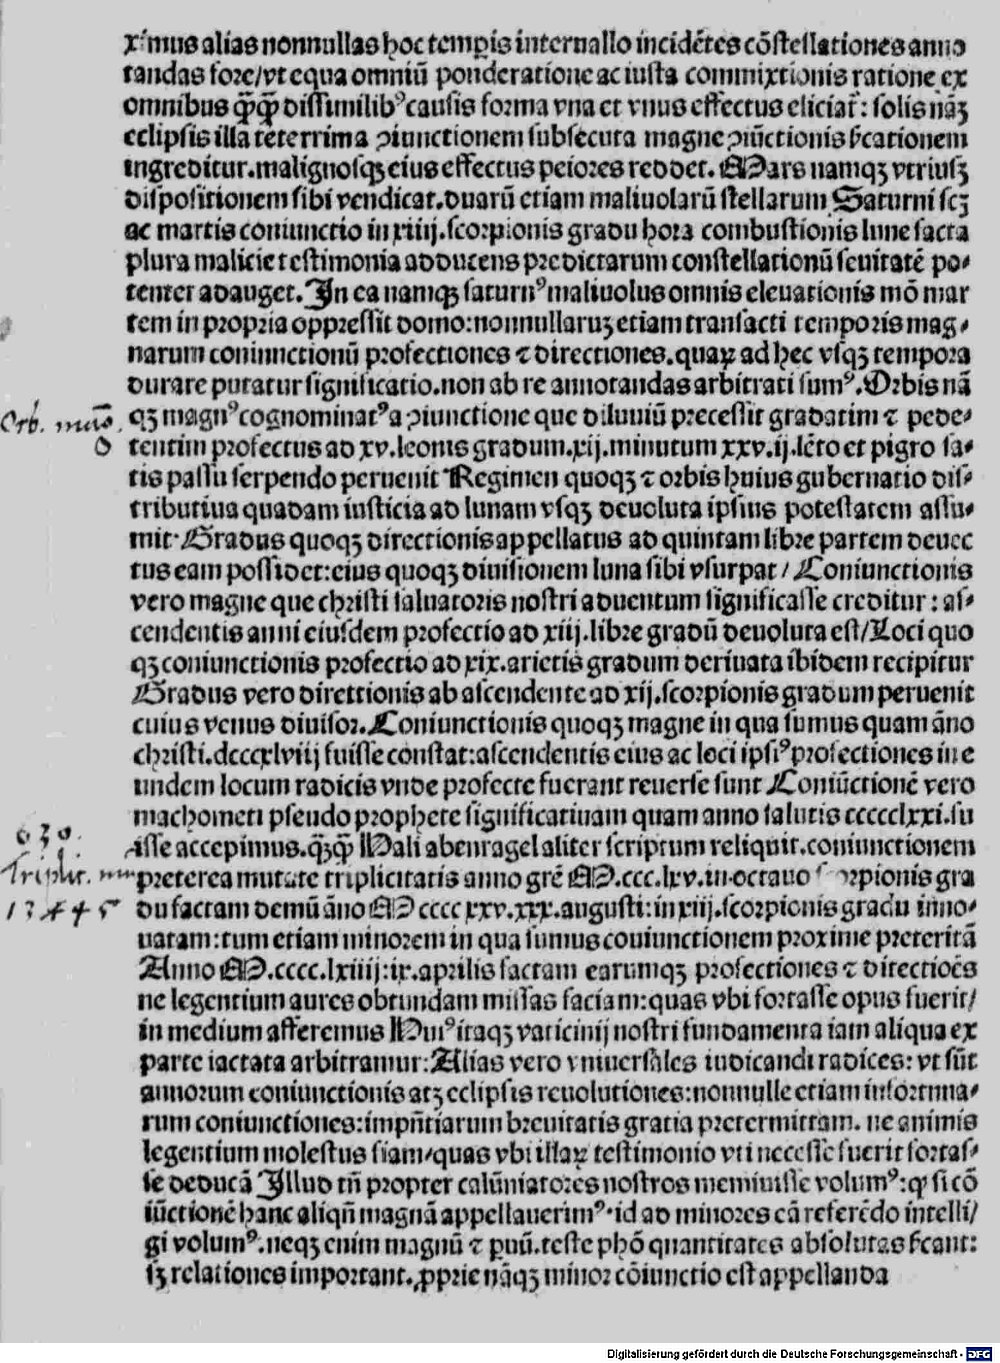 ximus alias nonnullas hoc temp̲is interuallo incidẽtes cõstellationes anno
tandas fore/vt equa omniũ ponderatione ac iusta commixtionis ratione ex
omnibus q̃q̃ dissimilibꝰ causis forma vna et vnus effectus eliciat̃: solis nãꝫ
eclipsis illa teterrima ↄiunctionem subsecuta magne ↄiũctionis ſicationem
ingreditur.malignosqꝫ eius effectus peiores reddet. Mars namqꝫ vtriusꝫ
dispositionem sibi vendicat.duarũ etiam maliuolarũ stellarum Saturni scꝫ
ac martis coniunctio in xiiij.scorpionis gradu hora combustionis lune facta
plura malicie testimonia adducens predictarum constellationũ seuitatẽ po⸗
tenter adauget. In ea namqꝫ saturnꝰ maliuolus omnis eleuationis mõ mar
tem in propria oppressit domo:nonnullaruꝫ etiam transacti temporis mag⸗
narum coniunctionũ profectiones ⁊ directiones.quaꝝ ad hec vsqꝫ tempora
durare putatur significatio.non ab re annotandas arbitrati sumꝰ. Orbis nã
Orb. mag̃.
qꝫ magnꝰ cognominatꝰ a ↄiunctione que diluuiũ precessit gradatim ⁊ pede⸗
tentim profectus ad xv.leonis gradum.xij.minutum xxv.ij.lẽto et pigro sa⸗
tis passu serpendo peruenit Regimen quoqꝫ ⁊ orbis huius gubernatio dis⸗
tributiua quadam iusticia ad lunam vsqꝫ deuoluta ipsius potestatem assu⸗
mit· Gradus quoqꝫ directionis appellatus ad quintam libre partem deuec
tus eam possidet:eius quoqꝫ diuisionem luna sibi vsurpat / Coniunctionis
vero magne que christi saluatoris nostri aduentum significasse creditur : as⸗
cendentis anni eiusdem profectio ad xiij.libre gradũ deuoluta est/Loci quo
qꝫ coniunctionis profectio ad xix.arietis gradum deriuata ibidem recipitur
Gradus vero direttionis ab ascendente ad xij.scorpionis gradum peruenit
cuius venus diuisor. Coniunctionis quoqꝫ magne in qua sumus quam ãno
christi.dcccxlviij fuisse constat:ascendentis eius ac loci ipsiꝰ profectiones in e
undem locum radicis vnde profecte fuerant reuerse sunt Coniũctionẽ vero
machometi pseudo prophete significatiuam quam anno salutis ccccclxxi.fu
630.
isse accepimus.q̃ꝫq̃ Hali abenragel aliter scriptum reliquit. coniunctionem
Triplic. mu
preterea mutate triplicitatis anno grẽ M.ccc.lxv.in octauo scorpionis gra
13 4 4 5
du factam demũ ãno M cccc xxv.xxx.augusti:in xiij.scorpionis gradu inno⸗
uatam:tum etiam minorem in qua sumus coniunctionem proxime preteritã
Anno M.cccc.lxiiij:ix.aprilis factam earumqꝫ profectiones ⁊ directiões
ne legentium aures obtundam missas faciam:quas vbi fortasse opus fuerit/
in medium afferemus Huiꝰ itaqꝫ vaticinij nostri fundamenta iam aliqua ex
parte iactata arbitramur: Alias vero vniuersales iudicandi radices: vt sũt
annorum coniunctionis atqꝫ eclipsis reuolutiones:nonnulle etiam infortuna⸗
rum coniunctiones:impñtiarum breuitatis gratia pretermittam. ne animis
legentium molestus fiam/quas vbi illaꝝ testimonio vti necesse fuerit fortas⸗
se deducã Illud tñ propter calũniatores nostros meminisse volumꝰ:ꝙ si cõ
iũctionẽ hanc aliqñ magnã appellauerimꝰ·id ad minores eã referẽdo intelli/
gi volumꝰ.neqꝫ enim magnũ ⁊ ꝑuũ.teste phõ quantitates absolutas ſicant:
sꝫ relationes important.ꝓprie nãqꝫ minor cõiunctio est appellanda
Digitalisierung gefördert durch die Deutsche Forschungsgemeinschaft - DFG